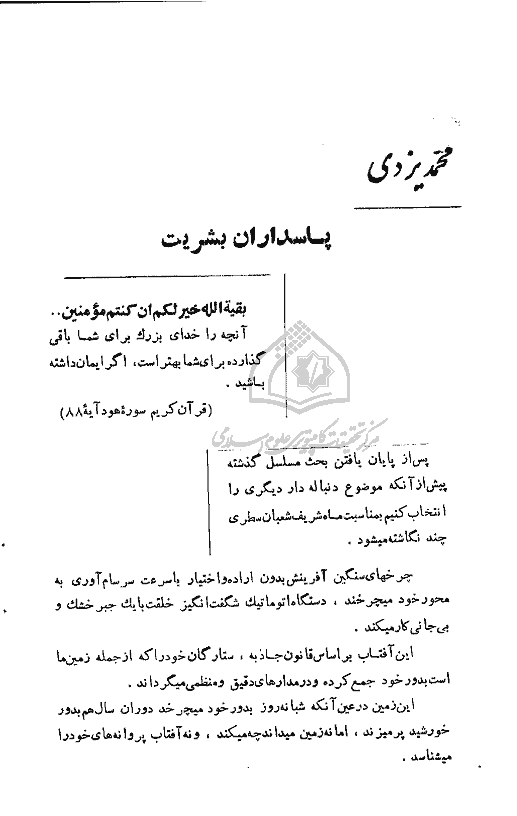 محمّد یزدی
پاسداران بشریت
بقیة الله خیر لکم ان کنتم مؤمنین..
آنچه را خدای بزرك برای شما باقی
گذارده برای شما بهتر است، اگر ایمان داشته
باشید .
(قرآن کریم سورهٔ هود آیهٔ ۸۸)
مرکز تحقیقات کامپیوتری علوم اسلامی
پس از پایان یافتن بحث مسلسل گذشته
پیش از آنکه موضوع دنباله دار دیگری را
انتخاب کنیم بمناسبت ماه شریف شعبان سطری
چند نگاشته میشود .
چرخهای سنگین آفرینش بدون اراده و اختیار با سرعت سرسام آوری به
محور خود میچرخند ، دستگاه اتوماتیك شگفت انگیز خلقت با یك جبر خشك و
بی جانی کار میکند .
این آفتاب بر اساس قانون جاذبه ، ستارگان خود را که از جمله زمین ما
است بدور خود جمع کرده و در مدارهای دقیق و منظمی میگرداند .
این زمین در عین آنکه شبانه روز بدور خود میچرخد دوران سال هم بدور
خورشید پر میزند ، اما نه زمین میداند چه میکند ، و نه آفتاب پروانه های خود را
میشناسد .